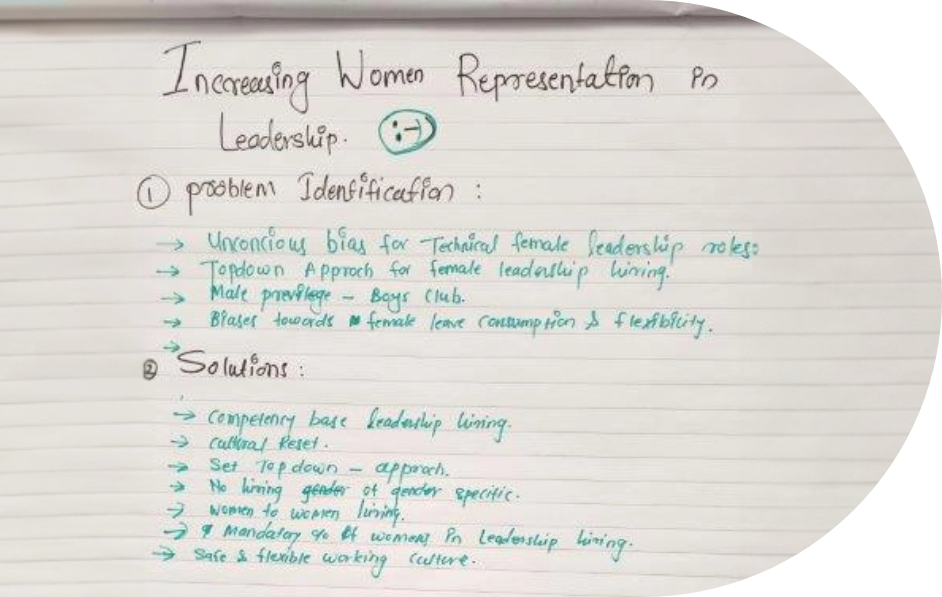 Increasing Women Representation in
Leadership. :-)
① problem Identification :
→ Unconcious bias for Technical female leadership roles:
→ Topdown Approch for female leadership hiring.
→ Male previlege - Boys Club.
→ Biases towards female leave consumption & flexibility.
→
② Solutions :
→ Competency base leadership hiring.
→ Cultural Reset.
→ Set Topdown - approch.
→ No hiring gender of gender specific.
→ Women to women hiring.
→ Mandatory % of womens in Leadership hiring.
→ Safe & flexible working culture.